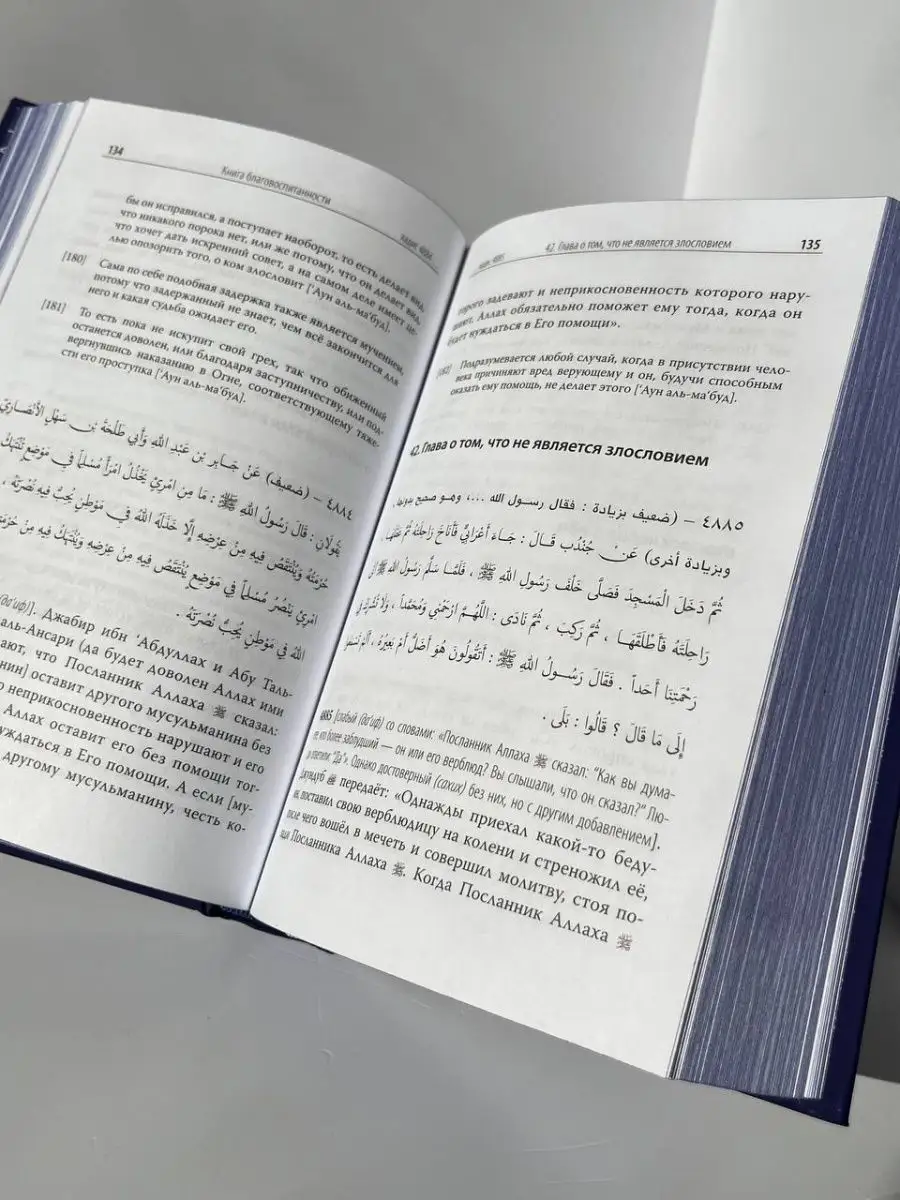 134
Книга благовоспитанности
хадис 4884
бы он исправился, а поступает наоборот, то есть делает вид,
что никакого порока нет, или же потому, что он делает вид,
что хочет дать искренний совет, а на самом деле имеет це-
лью опозорить того, о ком злословит [‘Аун аль-ма‘буд].
[180] Сама по себе подобная задержка также является мучением,
потому что задержанный не знает, чем всё закончится для
него и какая судьба ожидает его.
[181] То есть пока не искупит свой грех, так что обиженный
останется доволен, или благодаря заступничеству, или под-
вергнувшись наказанию в Огне, соответствующему тяже-
сти его проступка [‘Аун аль-ма‘буд].
٤٨٨٤ – (ضعيف) عَنْ جَابِرِ بْنِ عَبْدِ اللهِ وَأَبِي طَلْحَةَ بْنِ سَهْلٍ الْأَنْصَارِيِّ
يَقُولَانِ : قَالَ رَسُولُ اللهِ ﷺ : مَا مِنِ امْرِئٍ يَخْذُلُ امْرَأً مُسْلِماً فِي مَوْضِعٍ تُنْتَهَكُ
حُرْمَتُهُ وَيُنْتَقَصُ فِيهِ مِنْ عِرْضِهِ إِلَّا خَذَلَهُ اللهُ فِي مَوْطِنٍ يُحِبُّ فِيهِ نُصْرَتَهُ ،
امْرِئٍ يَنْصُرُ مُسْلِماً فِي مَوْضِعٍ يُنْتَقَصُ فِيهِ مِنْ عِرْضِهِ وَيُنْتَهَكُ فِيهِ مِنْ حُرْمَتِهِ
اللهُ فِي مَوْطِنٍ يُحِبُّ نُصْرَتَهُ .
(да‘иф)]. Джабир ибн ‘Абдуллах и Абу Таль-
аль-Ансари (да будет доволен Аллах ими
ают, что Посланник Аллаха ﷺ сказал:
нин] оставит другого мусульманина без
о неприкосновенность нарушают и его
Аллах оставит его без помощи тог-
уждаться в Его помощи. А если [му-
другому мусульманину, честь ко-
хадис 4885
42. Глава о том, что не является злословием
135
торого задевают и неприкосновенность которого нару-
шают, Аллах обязательно поможет ему тогда, когда он
будет нуждаться в Его помощи».
[182] Подразумевается любой случай, когда в присутствии чело-
века причиняют вред верующему и он, будучи способным
оказать ему помощь, не делает этого [‘Аун аль-ма‘буд].
42. Глава о том, что не является злословием
٤٨٨٥ – (ضعيف بزيادة : فقال رسول الله ...، وهو صحيح بدونها ،
وبزيادة أخرى) عَنْ جُنْدُبٍ قَالَ : جَاءَ أَعْرَابِيٌّ فَأَنَاخَ رَاحِلَتَهُ ثُمَّ عَقَلَهَا ،
ثُمَّ دَخَلَ الْمَسْجِدَ فَصَلَّى خَلْفَ رَسُولِ اللهِ ﷺ ، فَلَمَّا سَلَّمَ رَسُولُ اللهِ ﷺ أَتَى
رَاحِلَتَهُ فَأَطْلَقَهَا ، ثُمَّ رَكِبَ ، ثُمَّ نَادَى : اللَّهُمَّ ارْحَمْنِي وَمُحَمَّداً ، وَلَا تُشْرِكْ فِي
رَحْمَتِنَا أَحَداً . فَقَالَ رَسُولُ اللهِ ﷺ : أَتَقُولُونَ هُوَ أَضَلُّ أَمْ بَعِيرُهُ ، أَلَمْ تَسْمَعُوا
إِلَى مَا قَالَ ؟ قَالُوا : بَلَى .
4885 [слабый (да‘иф) со словами: «Посланник Аллаха ﷺ сказал: “Как вы дума-
ете, кто более заблудший — он или его верблюд? Вы слышали, что он сказал?” Лю-
ди ответили: “Да”». Однако достоверный (сахих) без них, но с другим добавлением].
Джундуб передаёт: «Однажды приехал какой-то беду-
ин, поставил свою верблюдицу на колени и стреножил её,
после чего вошёл в мечеть и совершил молитву, стоя по-
зади Посланника Аллаха ﷺ. Когда Посланник Аллаха ﷺ